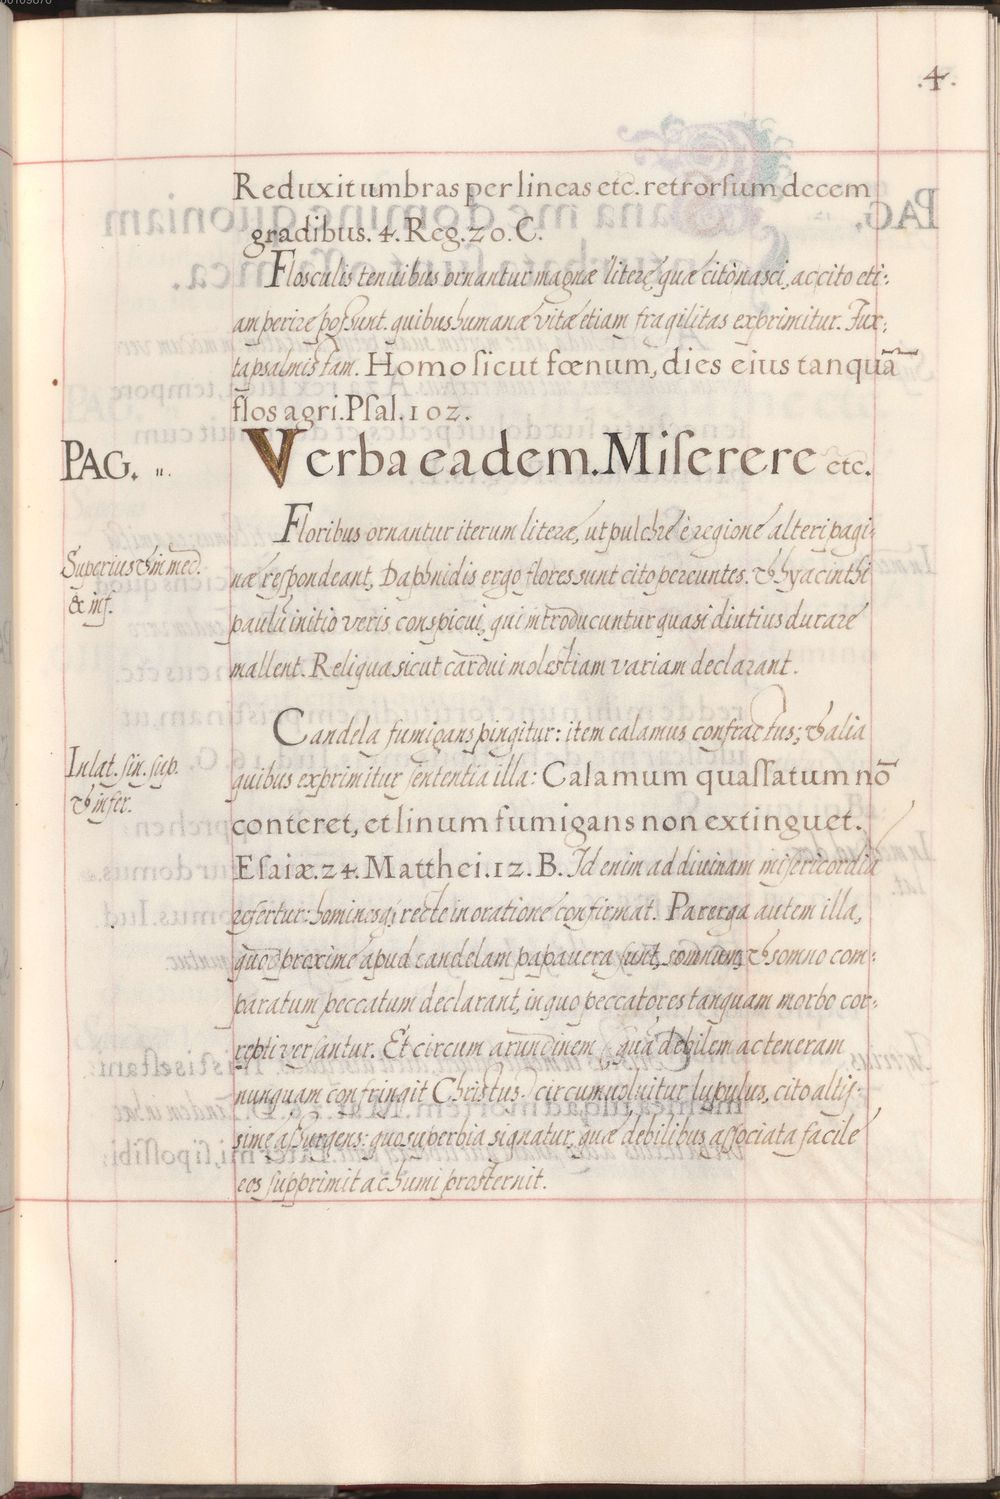 .4.
Reduxit umbras per lineas etc. retrorſum decem
gradibus. 4. Reg. 20. C.
Floſculis tenuibus ornantur magnæ literę, quæ cito naſci, ac cito eti:
am perire poſsunt. quibus humanæ vitæ etiam fragilitas exprimitur. Jux:
ta psalmistam. Homo ſicut fœnum, dies eius tanquā
flos agri. Pſal. 102.
PAG. 11.
Verba eadem. Miſerere etc.
Floribus ornantur iterum literæ, ut pulchrè è regione alteri pagi:
Superius & in med.
& inf.
næ reſpondeant, Daphnidis ergo flores sunt cito pereuntes. & hyacinthi
paulū initio veris conspicui, qui introducuntur quasi diutius durare
mallent. Reliqua sicut cardui molestiam variam declarant.
Candela fumigans pingitur: item calamus confractus; & alia
In lat. ſin. ſup.
& infer.
quibus exprimitur ſententia illa: Calamum quaſſatum nō
conteret, et linum fumigans non extinguet.
Eſaiæ. 24. Matthei. 12. B. Id enim ad diuinam miſericordiā
refertur: hominesq; recte in oratione confirmat. Parerga autem illa,
quod proxime apud candelam papauera ſunt, somnum, & somno com:
paratum peccatum declarant, in quo peccatores tanquam morbo cor:
repti verſantur. Et circum arundinem, quā debilem ac teneram
nunquam confringit Christus. circumuoluitur lupulus, cito altiſ:
sime aſſurgens: quo superbia signatur, quæ debilibus aſſociata facile
eos ſupprimit ac humi prosternit.